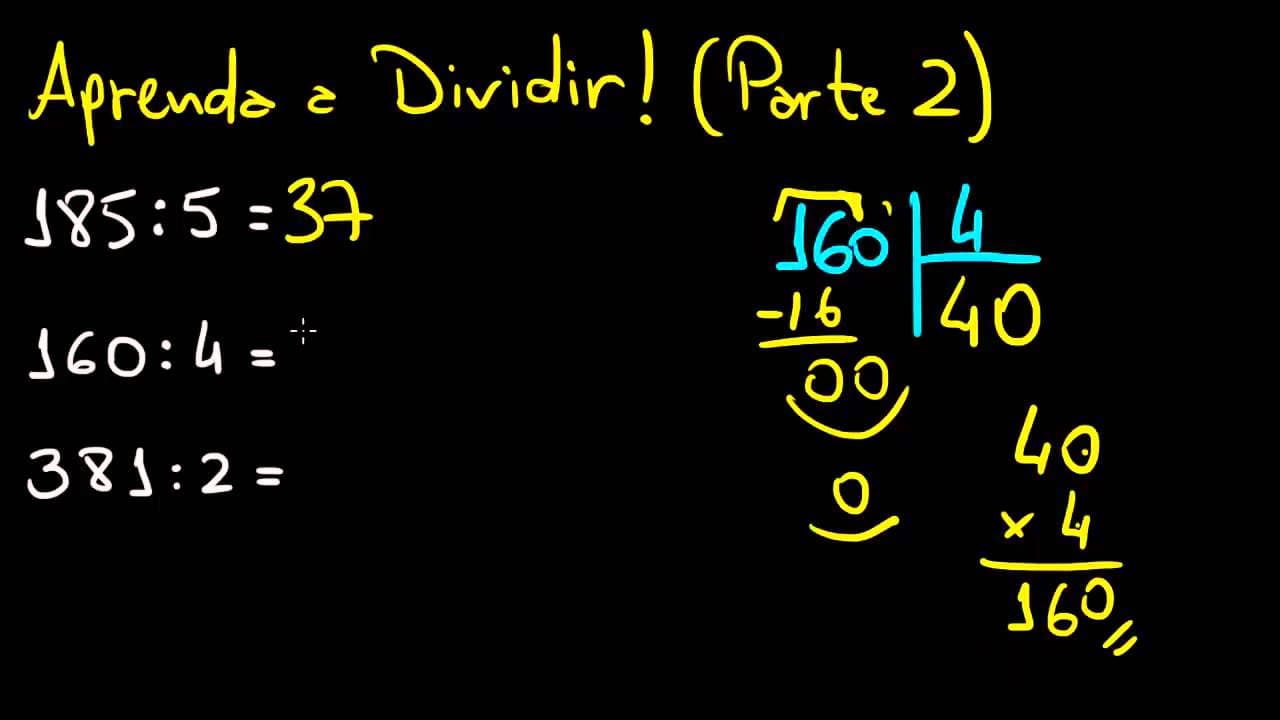 Aprenda a Dividir! (Parte 2)
185:5 = 37
160:4 =
381:2 =
160 4
-16 40
00
0
40
x 4
160